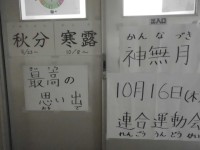 秋分 寒露
最高の
思い出
出入口
かんなづき
神無月
10月16日(木)
連合運動会
れんごううんどうかい